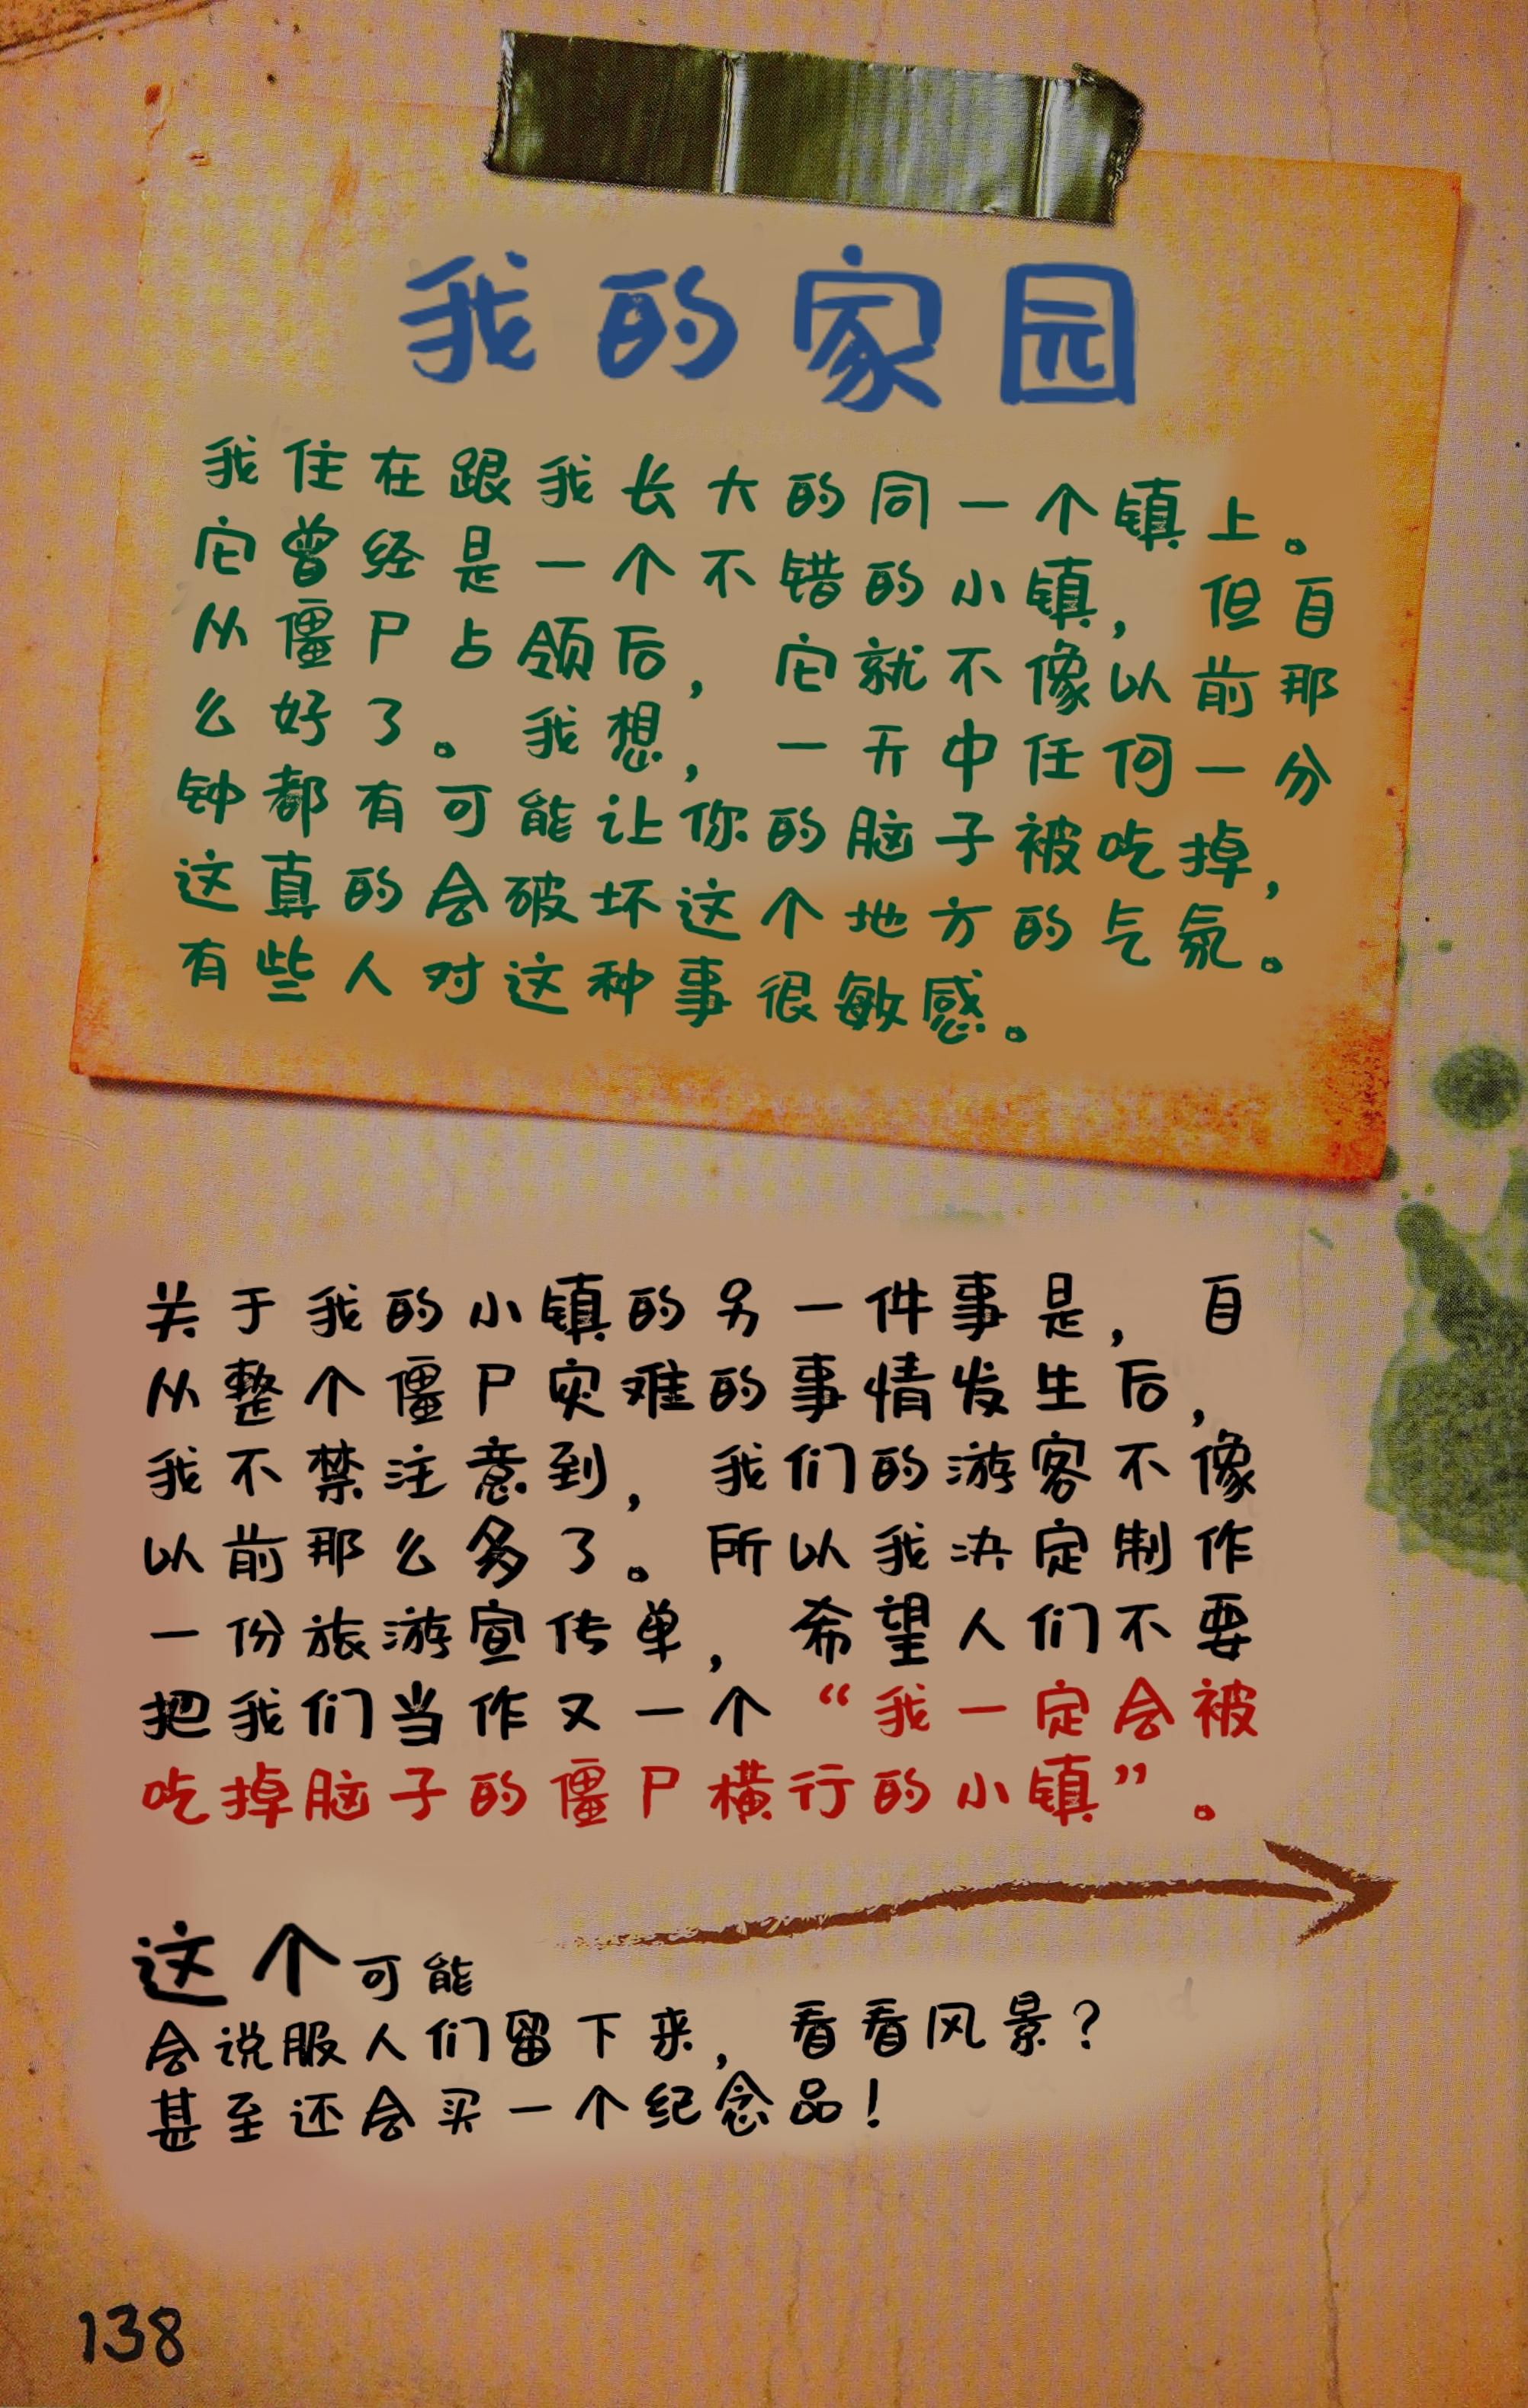 我的家园
我住在跟我长大的同一个镇上。
它曾经是一个不错的小镇，但自
从僵尸占领后，它就不像以前那
么好了。我想，一天中任何一分
钟都有可能让你的脑子被吃掉，
这真的会破坏这个地方的气氛。
有些人对这种事很敏感。
关于我的小镇的另一件事是，自
从整个僵尸灾难的事情发生后，
我不禁注意到，我们的游客不像
以前那么多了。所以我决定制作
一份旅游宣传单，希望人们不要
把我们当作又一个“我一定会被
吃掉脑子的僵尸横行的小镇”。
这个可能
会说服人们留下来，看看风景？
甚至还会买一个纪念品！
138